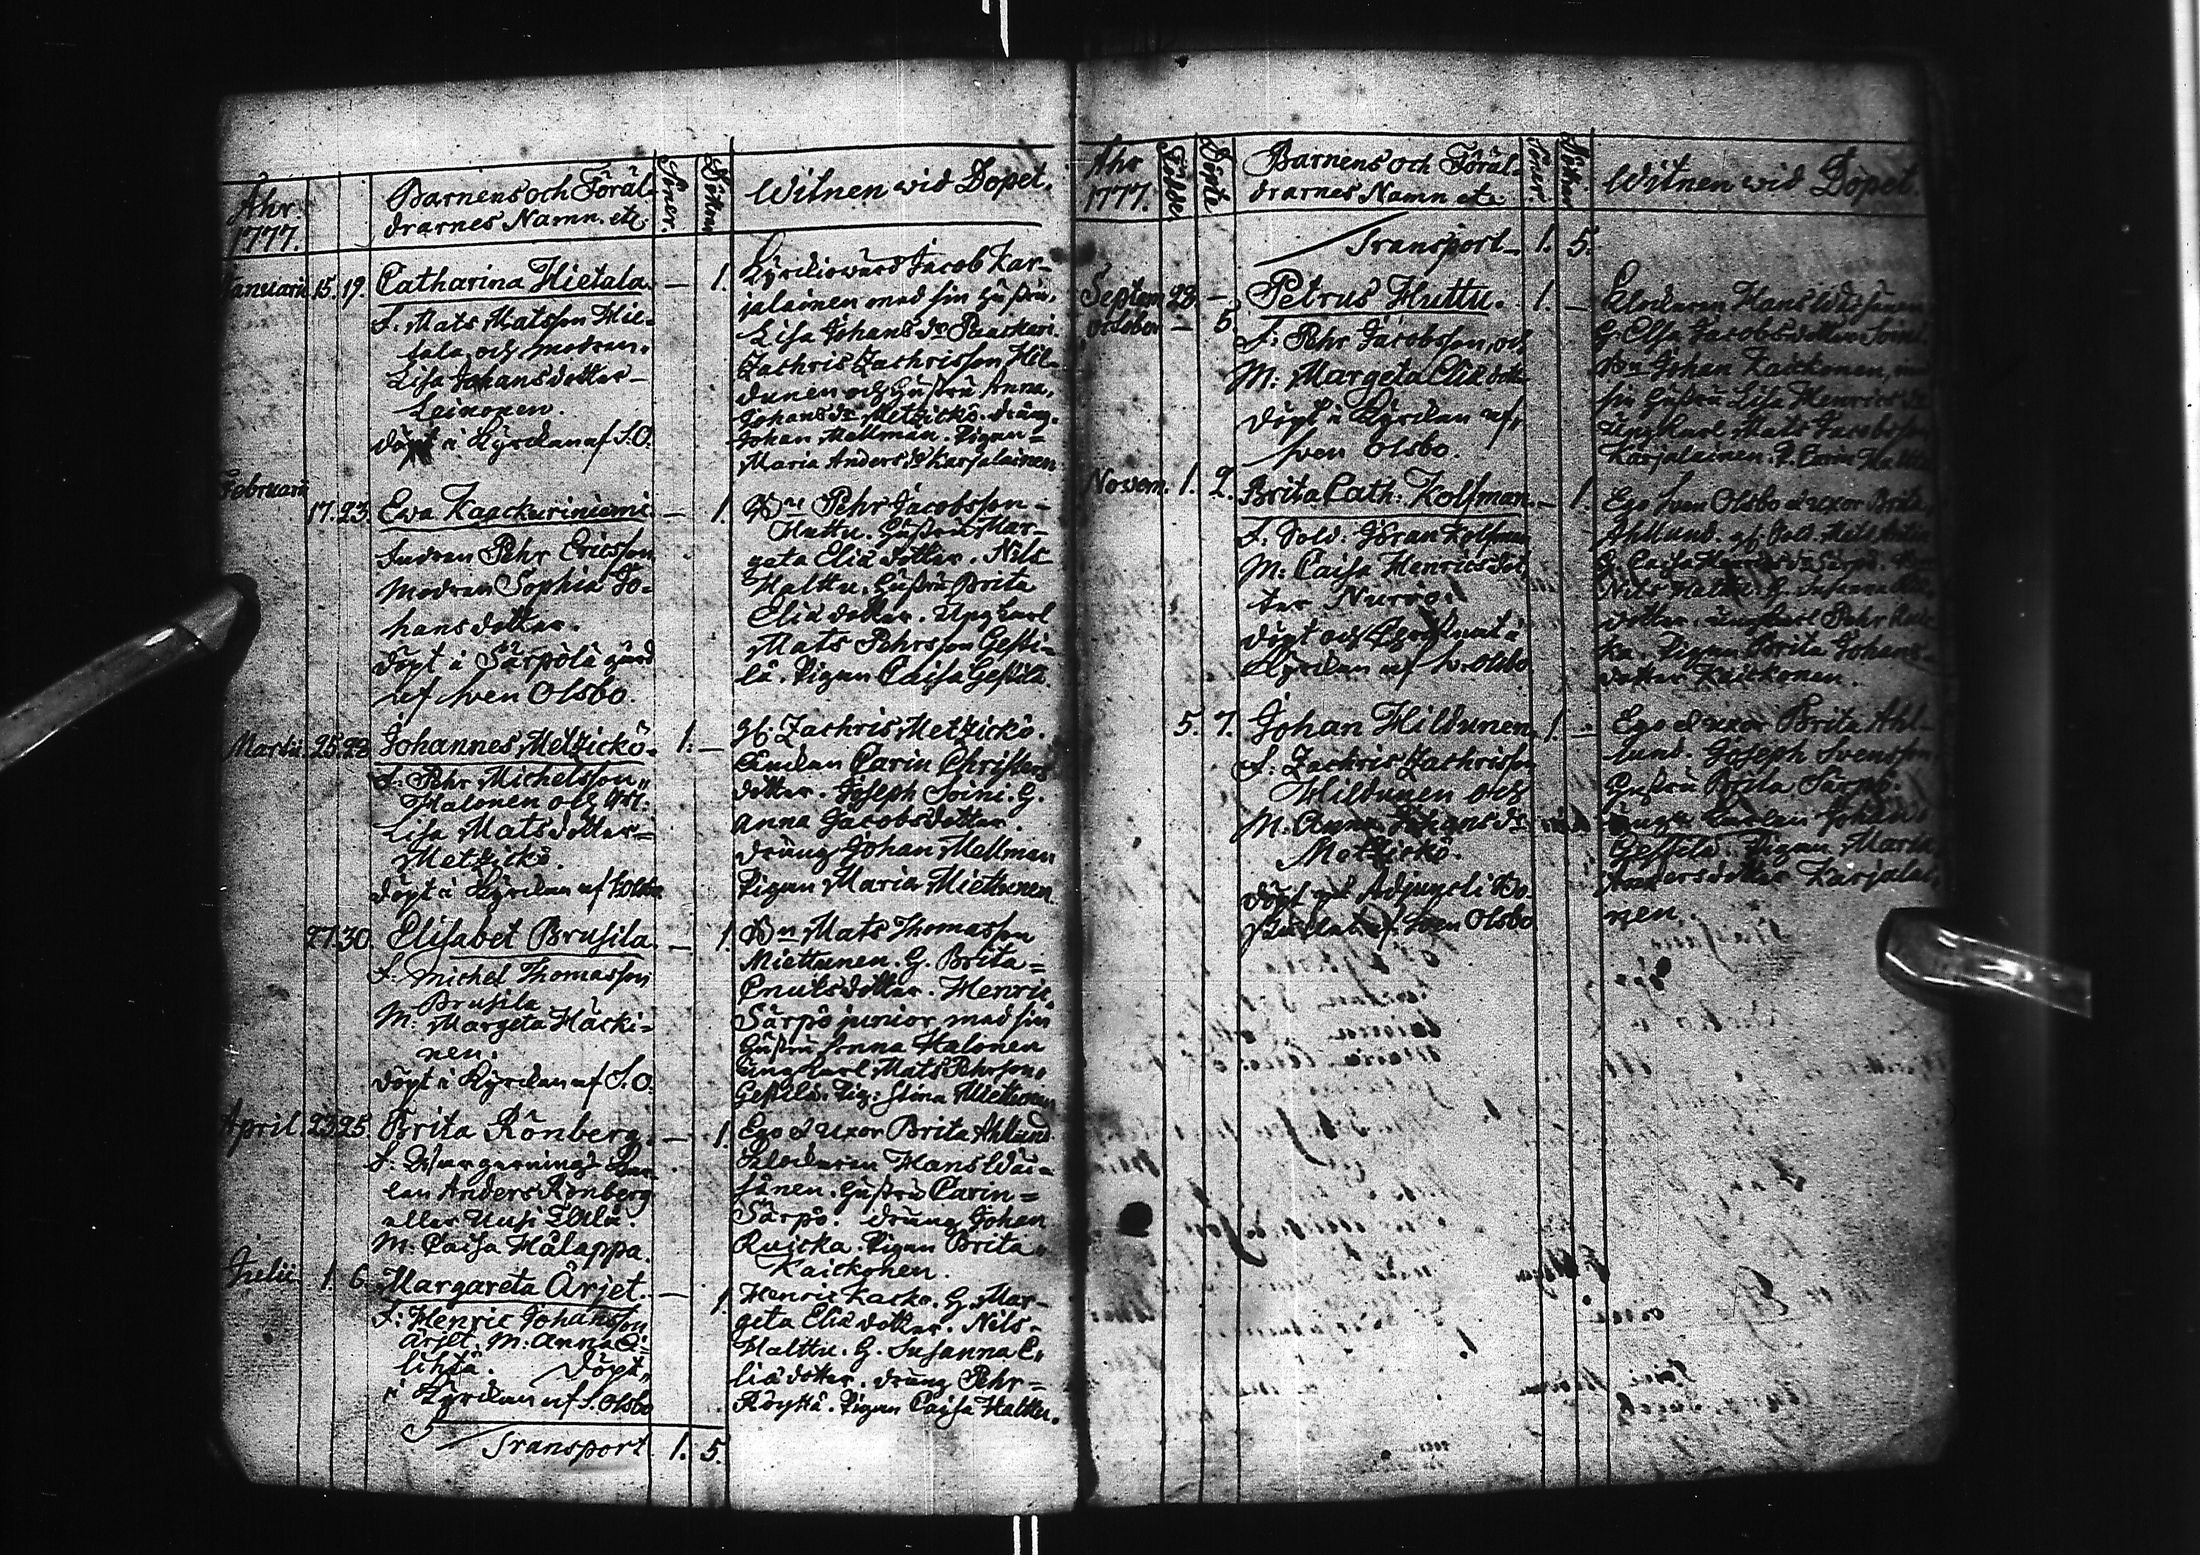 Åhr. 1777.
Barnens och Föräl-
drarnes Namn. etc.
Söner.
Döttrar
Witnen wid Dopet.
Januarii 15. 19. Catharina Hietala. — 1.
F. Mats Matsson Hie-
tala, och modren.
Lisa Johansdotter-
Leinonen.
döpt i Kyrckan af S.O.
Kyrckiowärd Jacob Kar-
jalainen med sin hustru,
Lisa Johans dr Paackari
Zachris Zachrisson Hil-
dunen och hustru Anna,
Johans dr Metzickö. dräng.
Johan Mellman. Pigan=
Maria Anders dr Karjalainen
Februarii
17. 23. Ewa Kaackuriniemi — 1.
Fadren Pehr Ericsson
Modren Sophia Jo-
hansdotter.
döpt i Särpölä gård
af Sven Olsbo.
Pehr Jacobsson-
Huttu. Hustru Mar-
geta Eliä dotter. Nils
Halttu. Hustru Brita
Eliä dotter. Ung karl
Mats Pehrsson Gesti-
lä. Pigan Caisa Gestilä.
Martii 25. 28. Johannes Metzickö. 1. —
F. Pehr Michelsson
Halonen och M:
Lisa Matsdotter=
Metzickö.
döpt i Kyrckan af S. Olsbo
Zachris Metzickö.
Enckan Carin Christers
dotter. Joseph Soini. G.
Anna Jacobsdotter.
dräng Johan Mellman
Pigan Maria Miettunen.
27. 30. Elisabet Brusila — 1
F. Michel Thomasson
Brusila
M: Margeta Häcki-
nen.
döpt i Kyrckan af S.O.
Mats Thomasson
Miettunen. G. Brita=
Cnutsdotter. Henric
Särpö junior med sin
hustru Anna Halonen
ung karl Mats Pehrson,
Gestilä. Pig: Stina Miettunen
April 23 25 Brita Rönberg. — 1.
F.
Anders Rönberg
eller Uusi
M. Caisa Hälappa.
Ego et uxor Brita Ahllund
Klockaren Hans Wäi-
sänen. Hustru Carin=
Särpö. dräng Johan
Ruicka. Pigan Brita
Kaickonen.
Julii 1. 6. Margareta Ärjet. — 1.
F: Henric Johansson
Ärjet. M: Anna
döpt
i Kyrckan af S. Olsbo
Henric Kacko. G. Mar-
geta Eliä dotter. Nils-
Halttu. G. Susanna E,
liä dotter. dräng Pehr=
Röyttä. Pigan Caisa Halttu.
Transport 1. 5.
Åhr 1777.
Födde
Döpte
Barnens och Föräl-
drarnes Namn etc.
Söner.
Döttrar
Witnen wid Dopet.
Transport- 1. 5.
Septem 28. — Petrus Huttu. 1. —
October — 5.
F: Pehr Jacobsson, och
M: Margeta Eliä dotter
döpt i Kyrckan af,
Sven Olsbo.
Klockaren Hans Wäisänen
G. Elsa Jacobsdotter Soini.
Johan Kaickonen, med
sin hustru Lisa Henrics dr
ung karl Mats Jacobsson
Karjalainen. P. Carin Halttu
Novem. 1. 2. Brita Cath. Kolfman — 1.
F. Sold. Jöran Kolfman
M: Caisa Henricsdot
ter Nurro.
döpt och
Kyrckan af Sv. Olsbo
Ego Sven Olsbo et uxor Brita,
Ahllund.
Nils Halttu. G. Susanna Eliä
dotter. ung karl Pehr
ka. Pigan Brita Johans-
dotter Kaickonen.
5. 7. Johan Hildunen. 1. —
F. Zachris Zachrisson
Hildunen och
M. Anna Johans dr
Metzickö.
döpt på Adjuncti Bo
stället af Sven Olsbo
Ego et uxor Brita Ahl-
lund. Joseph Svensson
Hustru Brita Särpö.
unga karlen Johan
Gestilä. Pigan Maria,
Andersdotter Karjalai,
nen.